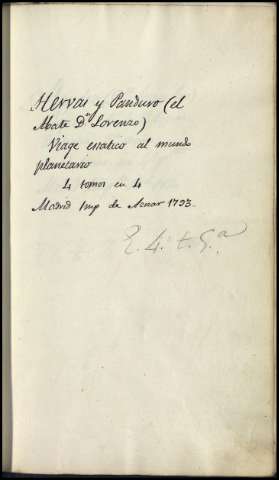 Hervas y Panduro (el
Abate Dn Lorenzo)
Viage estatico al mundo
planetario
4 tomos en 4
Madrid Imp de Aznar 1793.
E. 4. t. 5.a